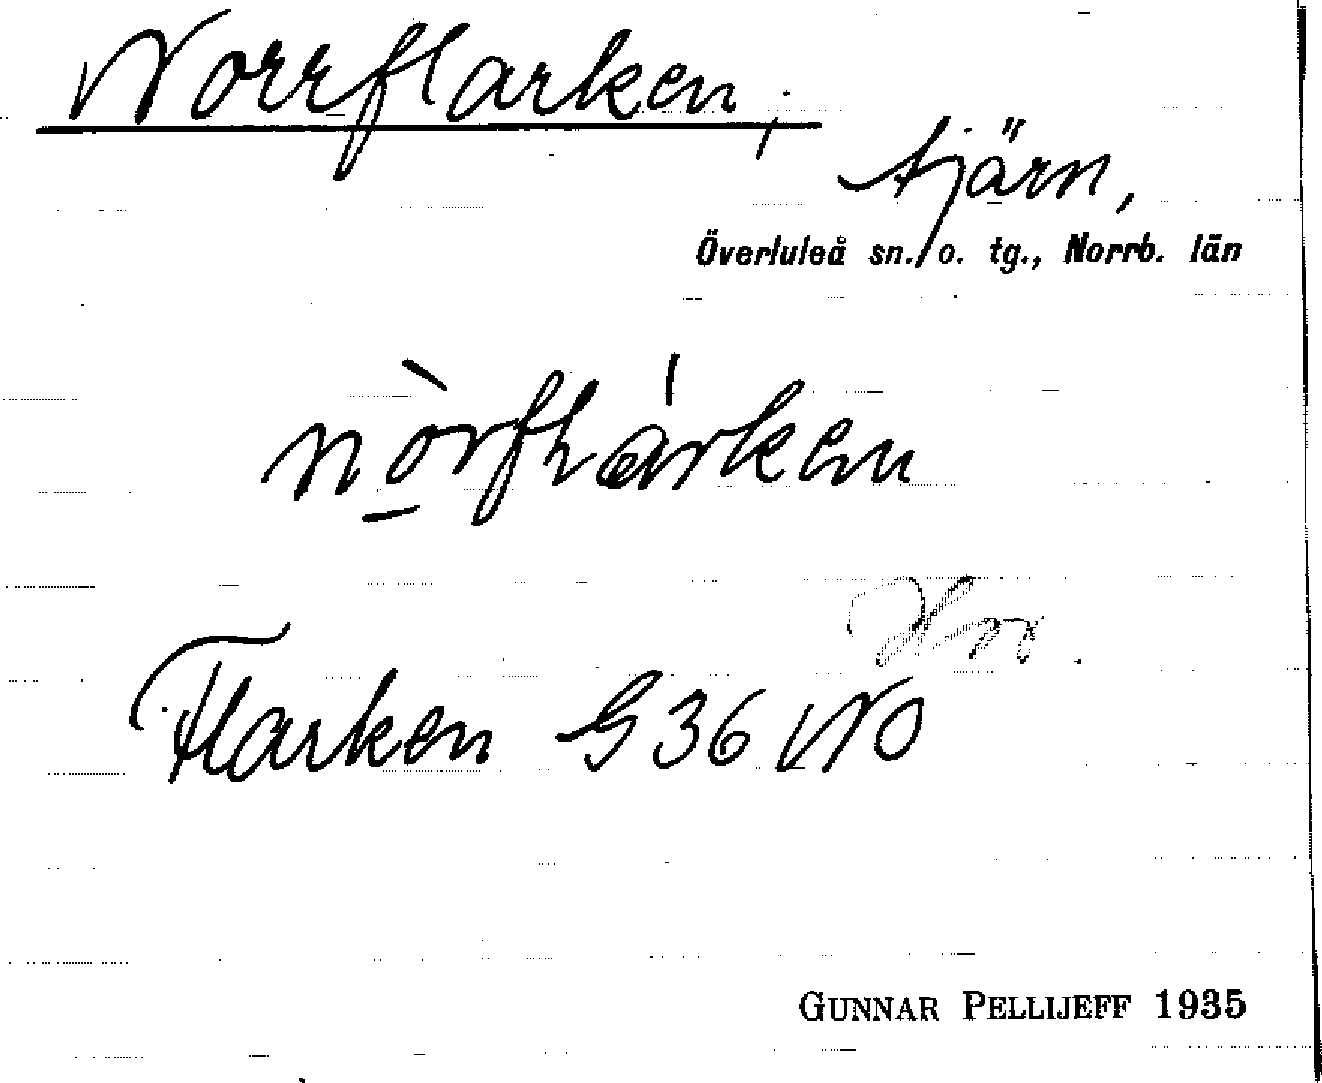 Norrflarken,
tjärn,
Överluleå sn. o. tg., Norrb. län
Flarken G 36 NO
GUNNAR PELLIJEFF 1935